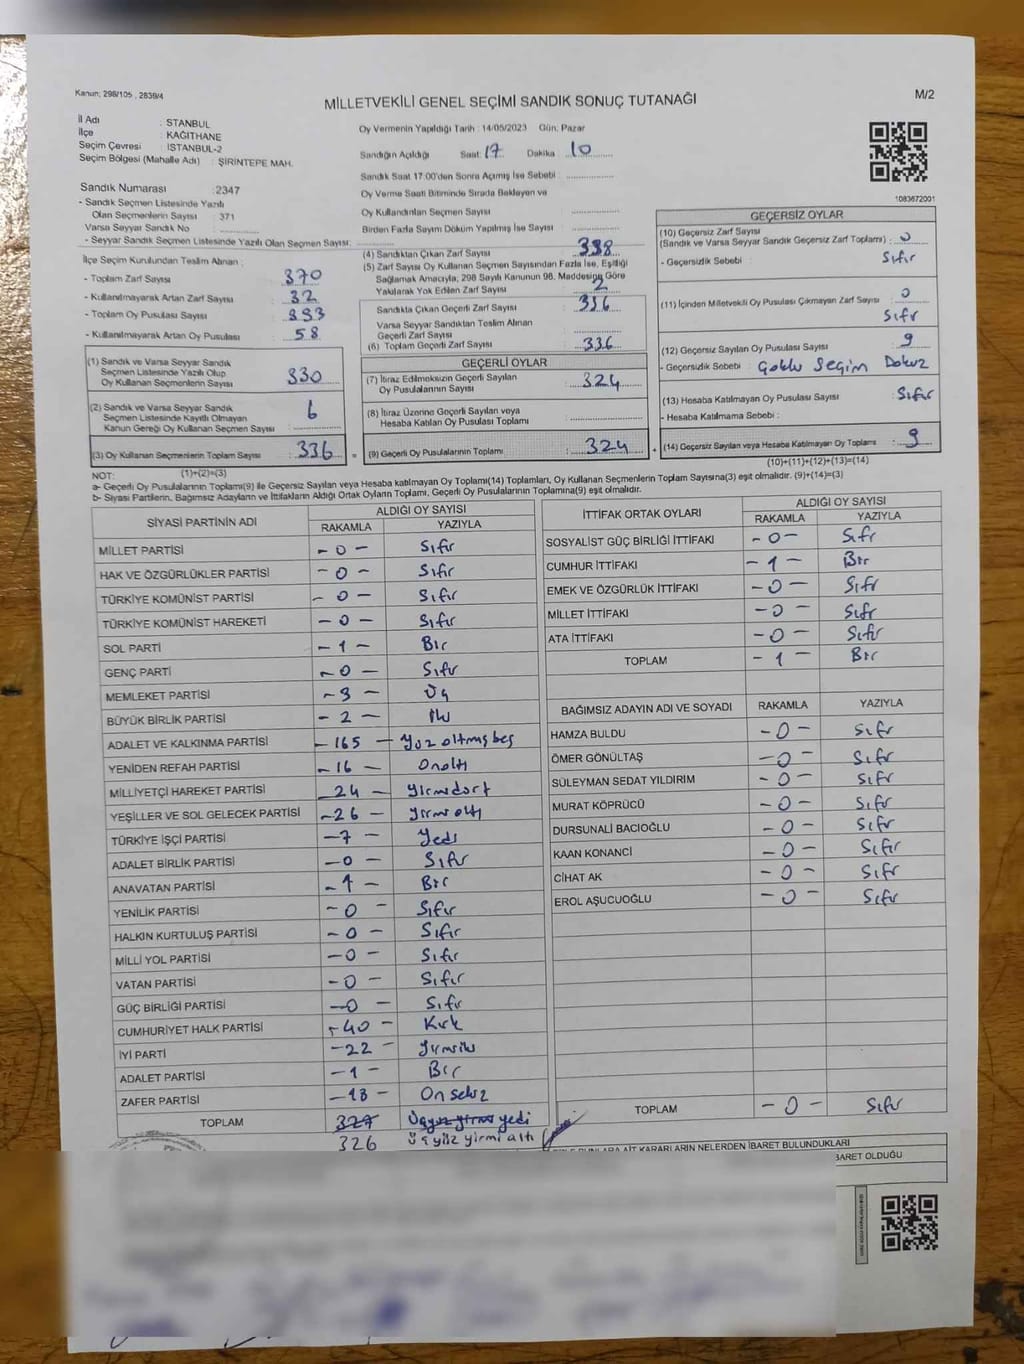 Kanun; 298/105 , 2839/4
MİLLETVEKİLİ GENEL SEÇİMİ SANDIK SONUÇ TUTANAĞI
M/2
İl Adı : İSTANBUL
İlçe : KAĞITHANE
Seçim Çevresi : İSTANBUL-2
Seçim Bölgesi (Mahalle Adı) : ŞİRİNTEPE MAH.
Sandık Numarası : 2347
- Sandık Seçmen Listesinde Yazılı
Olan Seçmenlerin Sayısı : 371
Varsa Seyyar Sandık No
- Seyyar Sandık Seçmen Listesinde Yazılı Olan Seçmen Sayısı:
Oy Vermenin Yapıldığı Tarih : 14/05/2023 Gün: Pazar
Sandığın Açıldığı Saat 17 Dakika 10
Sandık Saat 17:00'den Sonra Açımış İse Sebebi :
Oy Verme Saati Bitiminde Sırada Bekleyen ve
Oy Kullandırılan Seçmen Sayısı
Birden Fazla Sayım Döküm Yapılmış İse Sayısı :
1083672001
İlçe Seçim Kurulundan Teslim Alınan :
- Toplam Zarf Sayısı : 370
- Kullanılmayarak Artan Zarf Sayısı : 32
- Toplam Oy Pusulası Sayısı : 393
- Kullanılmayarak Artan Oy Pusulası : 58
(1) Sandık ve Varsa Seyyar Sandık
Seçmen Listesinde Yazılı Olup
Oy Kullanan Seçmenlerin Sayısı 330
(2) Sandık ve Varsa Seyyar Sandık
Seçmen Listesinde Kayıtlı Olmayan
Kanun Gereği Oy Kullanan Seçmen Sayısı : 6
(3) Oy Kullanan Seçmenlerin Toplam Sayısı : 336
(1)+(2)=(3)
(4) Sandıktan Çıkan Zarf Sayısı : 338
(5) Zarf Sayısı Oy Kullanan Seçmen Sayısından Fazla İse, Eşitliği
Sağlamak Amacıyla; 298 Sayılı Kanunun 98. Maddesine Göre
Yakılarak Yok Edilen Zarf Sayısı : 2
Sandıkta Çıkan Geçerli Zarf Sayısı : 336
Varsa Seyyar Sandıktan Teslim Alınan
Geçerli Zarf Sayısı :
(6) Toplam Geçerli Zarf Sayısı : 336
GEÇERLİ OYLAR
(7) İtiraz Edilmeksizin Geçerli Sayılan
Oy Pusulalarının Sayısı : 324
(8) İtiraz Üzerine Geçerli Sayılan veya
Hesaba Katılan Oy Pusulalarının Toplamı :
(9) Geçerli Oy Pusulalarının Toplamı : 324
GEÇERSİZ OYLAR
(10) Geçersiz Zarf Sayısı
(Sandık ve Varsa Seyyar Sandık Geçersiz Zarf Toplamı) : 0
- Geçersizlik Sebebi : Sıfır
(11) İçinden Milletvekili Oy Pusulası Çıkmayan Zarf Sayısı : 0
Sıfır
(12) Geçersiz Sayılan Oy Pusulası Sayısı : 9
- Geçersizlik Sebebi : Dokuz
(13) Hesaba Katılmayan Oy Pusulası Sayısı : Sıfır
- Hesaba Katılmama Sebebi :
(14) Geçersiz Sayılan veya Hesaba Katılmayan Oy Toplamı : 9
(10)+(11)+(12)+(13)=(14)
NOT:
a- Geçerli Oy Pusulalarının Toplamı(9) ile Geçersiz Sayılan veya Hesaba katılmayan Oy Toplamı(14) Toplamları, Oy Kullanan Seçmenlerin Toplam Sayısına(3) eşit olmalıdır. (9)+(14)=(3)
b- Siyasi Partilerin, Bağımsız Adayların ve İttifakların Aldığı Ortak Oyların Toplamı, Geçerli Oy Pusulalarının Toplamına(9) eşit olmalıdır.
SİYASİ PARTİNİN ADI ALDIĞI OY SAYISI
RAKAMLA YAZIYLA
MİLLET PARTİSİ - 0 - Sıfır
HAK VE ÖZGÜRLÜKLER PARTİSİ - 0 - Sıfır
TÜRKİYE KOMÜNİST PARTİSİ - 0 - Sıfır
TÜRKİYE KOMÜNİST HAREKETİ - 0 - Sıfır
SOL PARTİ - 1 - Bir
GENÇ PARTİ - 0 - Sıfır
MEMLEKET PARTİSİ - 3 - Üç
BÜYÜK BİRLİK PARTİSİ - 2 - İki
ADALET VE KALKINMA PARTİSİ - 165 - Yüz altmış beş
YENİDEN REFAH PARTİSİ - 16 - Onaltı
MİLLİYETÇİ HAREKET PARTİSİ - 24 - Yirmidört
YEŞİLLER VE SOL GELECEK PARTİSİ - 26 - Yirmi altı
TÜRKİYE İŞÇİ PARTİSİ - 7 - Yedi
ADALET BİRLİK PARTİSİ - 0 - Sıfır
ANAVATAN PARTİSİ - 1 - Bir
YENİLİK PARTİSİ - 0 - Sıfır
HALKIN KURTULUŞ PARTİSİ - 0 - Sıfır
MİLLİ YOL PARTİSİ - 0 - Sıfır
VATAN PARTİSİ - 0 - Sıfır
GÜÇ BİRLİĞİ PARTİSİ - 0 - Sıfır
CUMHURİYET HALK PARTİSİ - 40 - Kırk
İYİ PARTİ - 22 - Yirmiiki
ADALET PARTİSİ - 1 - Bir
ZAFER PARTİSİ - 18 - On sekiz
TOPLAM 327 Üçyüz yirmi yedi
326 üçyüz yirmi altı
İTTİFAK ORTAK OYLARI ALDIĞI OY SAYISI
RAKAMLA YAZIYLA
SOSYALİST GÜÇ BİRLİĞİ İTTİFAKI - 0 - Sıfır
CUMHUR İTTİFAKI - 1 - Bir
EMEK VE ÖZGÜRLÜK İTTİFAKI - 0 - Sıfır
MİLLET İTTİFAKI - 0 - Sıfır
ATA İTTİFAKI - 0 - Sıfır
TOPLAM - 1 - Bir
BAĞIMSIZ ADAYIN ADI VE SOYADI RAKAMLA YAZIYLA
HAMZA BULDU - 0 - Sıfır
ÖMER GÖNÜLTAŞ - 0 - Sıfır
SÜLEYMAN SEDAT YILDIRIM - 0 - Sıfır
MURAT KÖPRÜCÜ - 0 - Sıfır
DURSUNALİ BACIOĞLU - 0 - Sıfır
KAAN KONANCİ - 0 - Sıfır
CİHAT AK - 0 - Sıfır
EROL AŞUCUOĞLU - 0 - Sıfır
TOPLAM - 0 - Sıfır
BUNLARA AİT KARARLARIN NELERDEN İBARET BULUNDUKLARI
BARET OLDUĞU